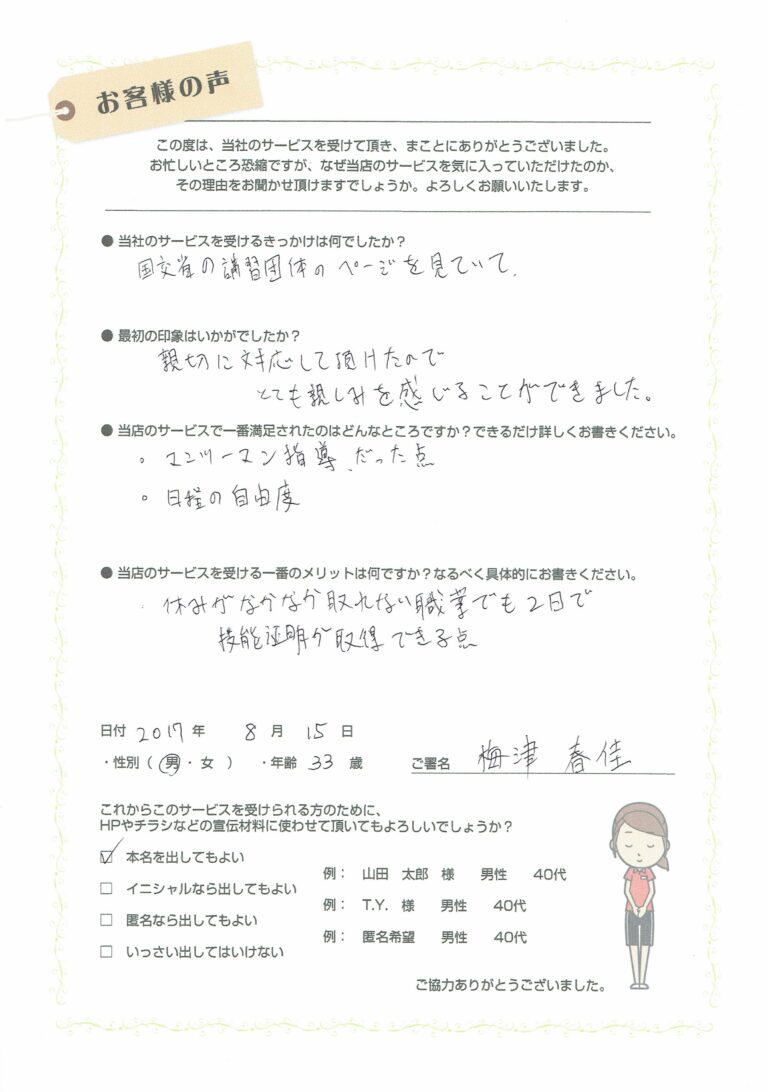 お客様の声
この度は、当社のサービスを受けて頂き、まことにありがとうございました。
お忙しいところ恐縮ですが、なぜ当店のサービスを気に入っていただけたのか、
その理由をお聞かせ頂けますでしょうか。よろしくお願いいたします。
● 当社のサービスを受けるきっかけは何でしたか？
国交省の講習団体のページを見ていて、
● 最初の印象はいかがでしたか？
親切に対応して頂けたので
とても親しみを感じることができました。
● 当店のサービスで一番満足されたのはどんなところですか？できるだけ詳しくお書きください。
。マンツーマン指導だった点
。日程の自由度
● 当店のサービスを受ける一番のメリットは何ですか？なるべく具体的にお書きください。
・休みがなかなか取れない職業でも2日で
技能証明が取得できる点
日付 2017 年 8 月 15 日
・性別（ 男 ・ 女 ） ・年齢 33 歳 ご署名 梅津 春佳
これからこのサービスを受けられる方のために、
HPやチラシなどの宣伝材料に使わせて頂いてもよろしいでしょうか？
☑ 本名を出してもよい 例： 山田 太郎 様 男性 40代
□ イニシャルなら出してもよい 例： T.Y. 様 男性 40代
□ 匿名なら出してもよい 例： 匿名希望 男性 40代
□ いっさい出してはいけない
ご協力ありがとうございました。